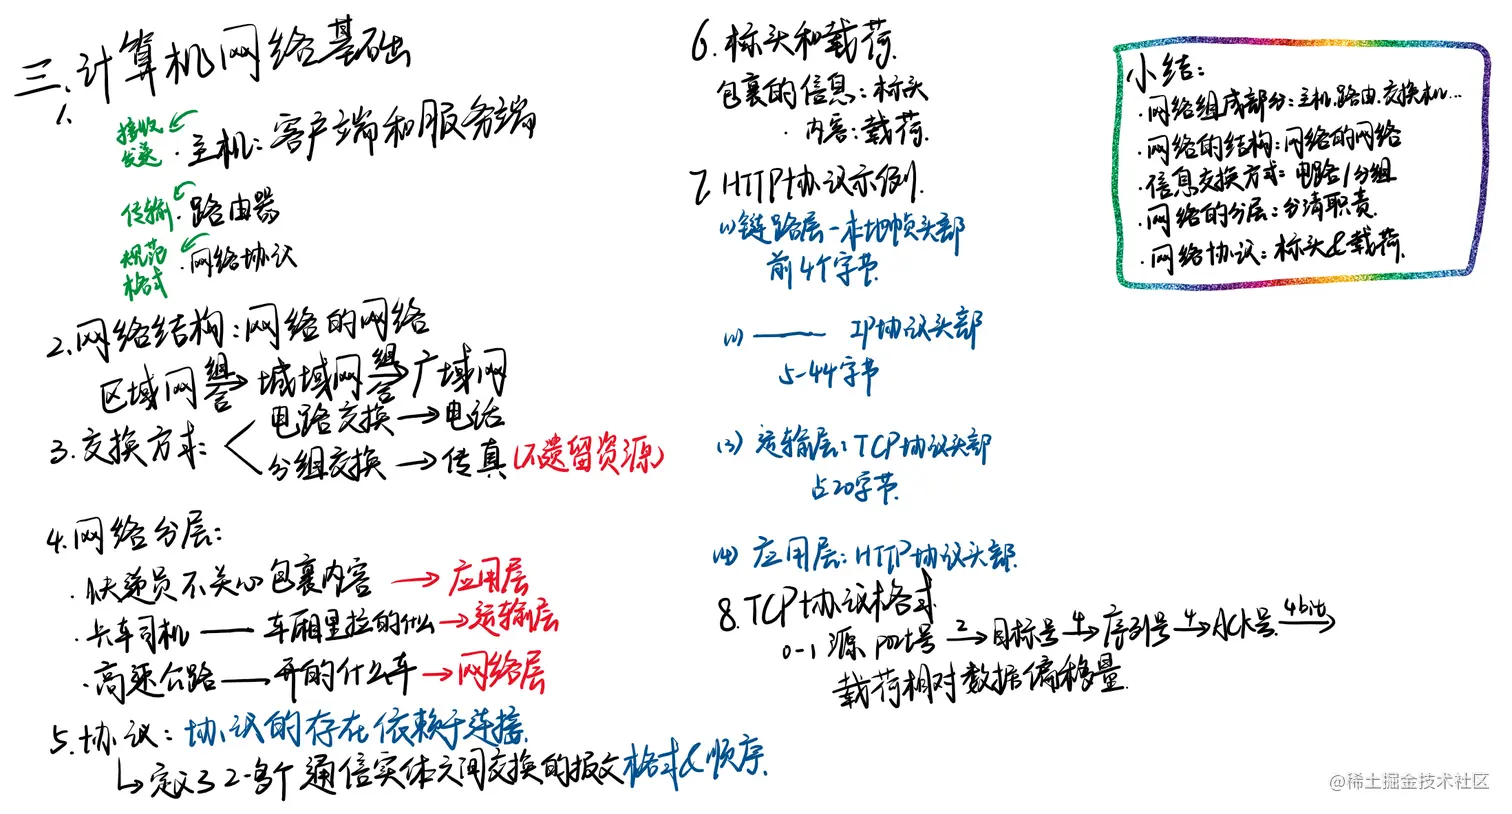 三.计算机网络基础
1.
接收
发送
·主机:客户端和服务端
传输·路由器
规范
格式
·网络协议
2.网络结构:网络的网络
区域网 组合→ 城域网 组合→ 广域网
3.交换方式:
电路交换→电话
分组交换→传真(不遗留资源)
4.网络分层:
·快递员不关心包裹内容→应用层
·卡车司机——车厢里拉的什么→运输层
·高速公路——开的什么车→网络层
5.协议:协议的存在依赖于连接.
↳定义了2-多个通信实体之间交换的报文格式&顺序.
6.标头和载荷.
包裹的信息:标头
·内容:载荷.
7.HTTP协议示例.
(1)链路层-本地帧头部
前4个字节.
(2)—— IP协议头部
5-44字节
(3)运输层:TCP协议头部
占20字节.
(4)应用层:HTTP协议头部.
8.TCP协议格式
0-1源port号 2→目标号 4→序列号 4→ACK号 4bit→
载荷相对数据偏移量.
小结:
·网络组成部分:主机.路由.交换机...
·网络的结构:网络的网络
·信息交换方式:电路/分组
·网络的分层:分清职责.
·网络协议:标头&载荷.
@稀土掘金技术社区